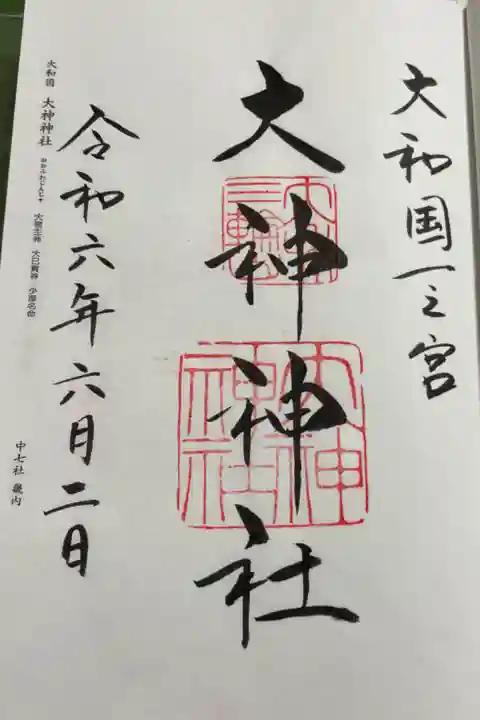 大和国一之宮
大神神社
三輪
大神
神社
令和六年六月二日
大和国 大神神社 おおみわじんじゃ 大物主神 大己貴神 少彦名命
中七社 畿内